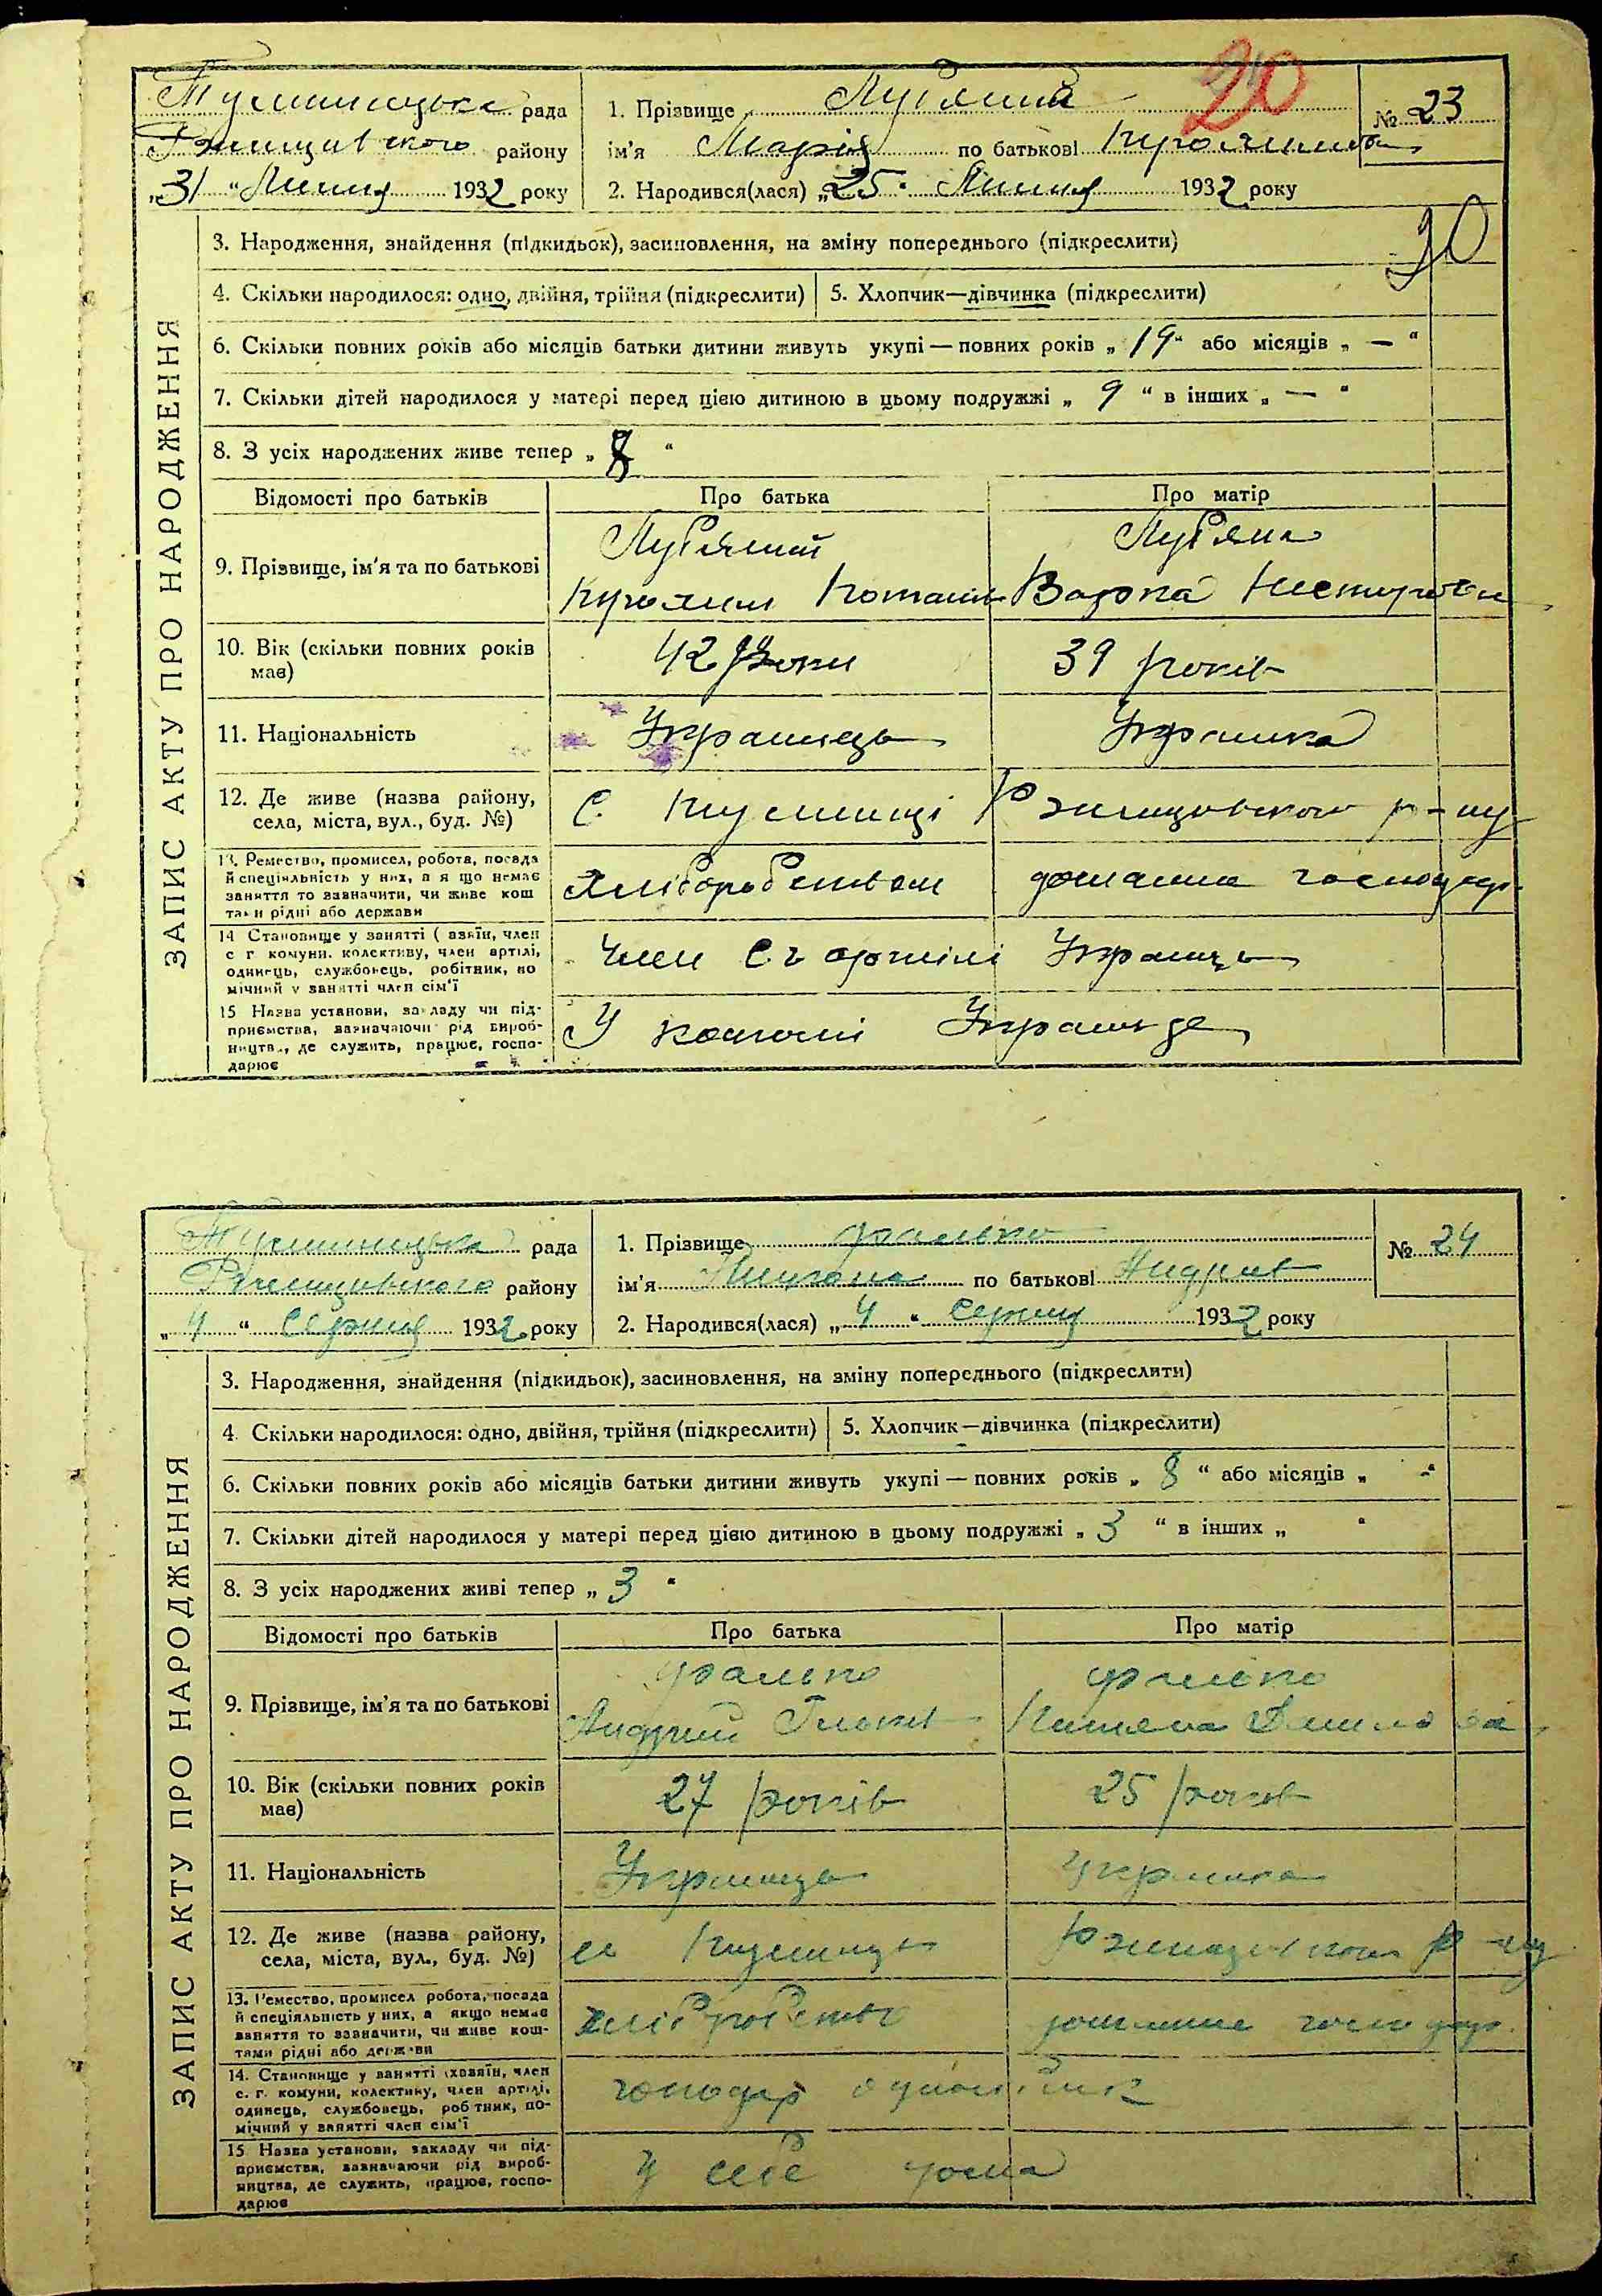 20
рада 1. Прізвище № 23
району ім'я Марія по батькові
„31“ Липня 1932 року 2. Народився(лася) „25“ Липня 1932 року
20
ЗАПИС АКТУ ПРО НАРОДЖЕННЯ
3. Народження, знайдення (підкидьок), засиновлення, на зміну попереднього (підкреслити)
4. Скільки народилося: одно, двійня, трійня (підкреслити) 5. Хлопчик—дівчинка (підкреслити)
6. Скільки повних років або місяців батьки дитини живуть укупі — повних років „19“ або місяців „ — “
7. Скільки дітей народилося у матері перед цією дитиною в цьому подружжі „ 9 “ в інших „ — “
8. З усіх народжених живе тепер „ 8 “
Відомості про батьків Про батька Про матір
9. Прізвище, ім'я та по батькові
10. Вік (скільки повних років має) 42 роки 39 років
11. Національність Українець Українка
12. Де живе (назва району, села, міста, вул., буд. №) С. р-ну
13. Ремество, промисел, робота, посада й спеціяльність у них, а я що немає заняття то зазначити, чи живе кош тами рідні або держави Хліборобством домашнє господар.
14 Становище у занятті ( азяїн, член с г комуни. колективу, член артілі, одинець, службовець, робітник, по мічний у занятті член сім'ї член с г артілі Українець
15 Назва установи, закладу чи підприємства, зазначаючи рід виробництва, де служить, працює, господарює У
рада 1. Прізвище Фалько № 24
району ім'я по батькові Андрієв
„ 4 “ Серпня 1932 року 2. Народився(лася) „ 4 “ Серпня 1932 року
ЗАПИС АКТУ ПРО НАРОДЖЕННЯ
3. Народження, знайдення (підкидьок), засиновлення, на зміну попереднього (підкреслити)
4. Скільки народилося: одно, двійня, трійня (підкреслити) 5. Хлопчик—дівчинка (підкреслити)
6. Скільки повних років або місяців батьки дитини живуть укупі — повних років „ 8 “ або місяців „ -“
7. Скільки дітей народилося у матері перед цією дитиною в цьому подружжі „ 3 “ в інших „ “
8. З усіх народжених живі тепер „ 3 “
Відомості про батьків Про батька Про матір
9. Прізвище, ім'я та по батькові Фалько Фалько
Андрій
10. Вік (скільки повних років має) 27 років 25 років
11. Національність Українець Українка
12. Де живе (назва району, села, міста, вул., буд. №) р-ну
13. Ремество, промисел робота, посада й спеціяльність у них, а якщо немає заняття то зазначити, чи живе коштами рідні або держави хліборобство домашнє господар.
14. Становище у занятті (хазяїн, член с. г. комуни, колективу, член артілі, одинець, службовець, робтник, помічний у занятті член сім'ї господар
15 Назва установи, закладу чи підприємства, зазначаючи рід виробництва, де служить, працює, господарює У себе дома